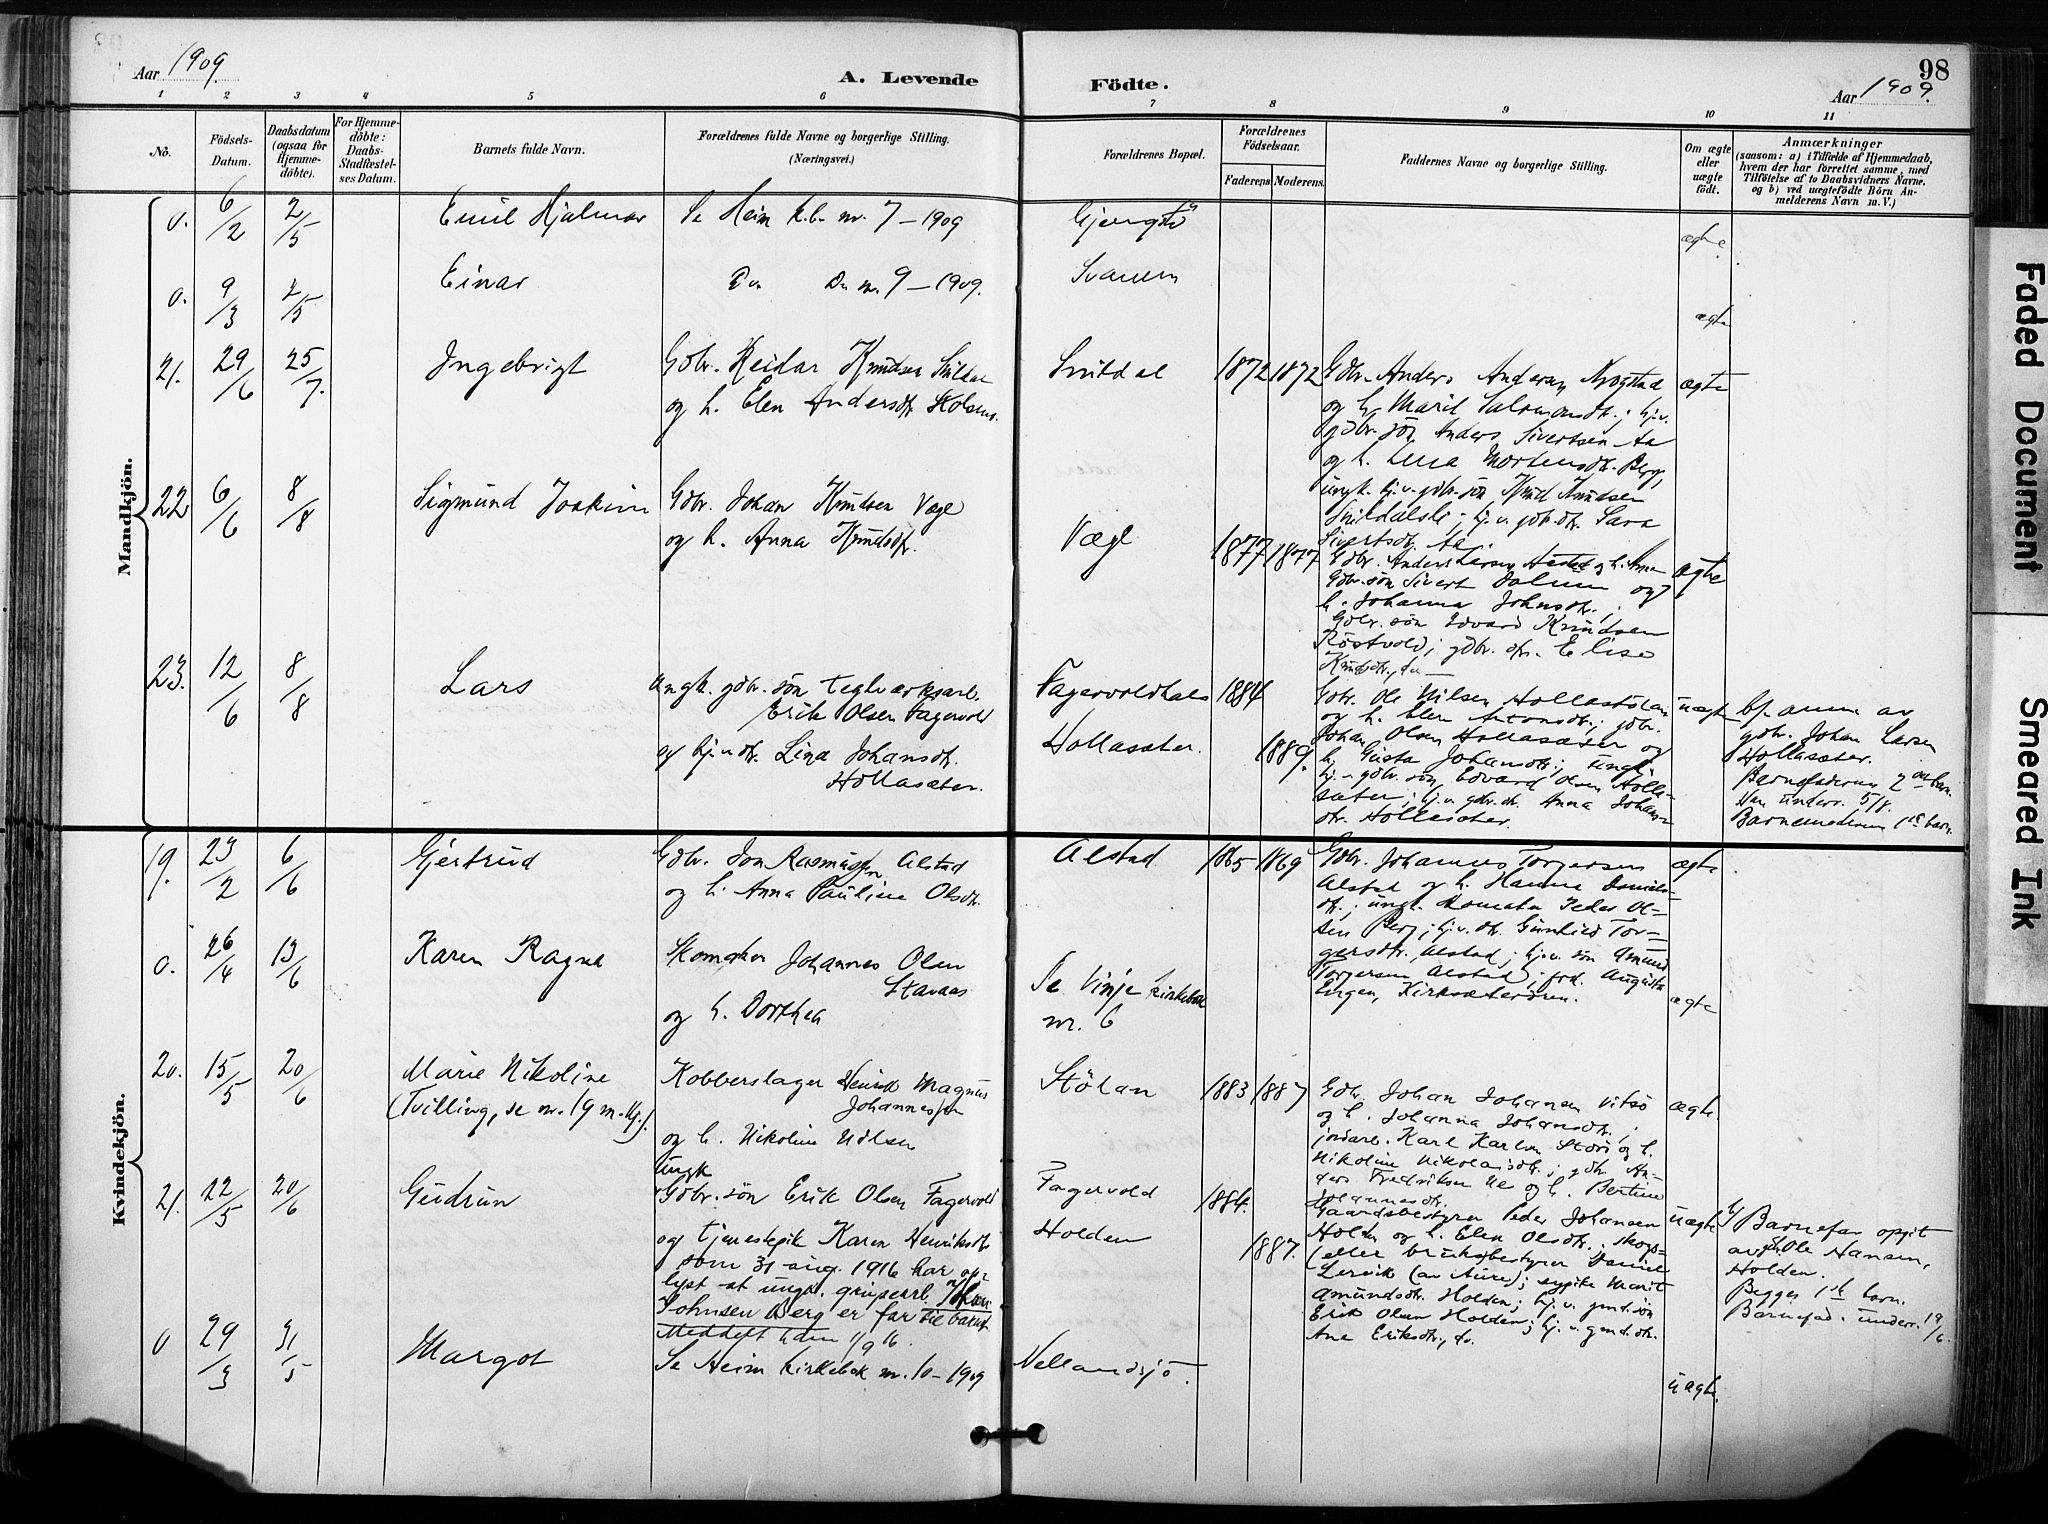 98
Aar 1909.
A. Levende Födte.
Aar 1909.
1 2 3 4 5 6 7 8 9 10 11
No.
Födsels-Datum.
Daabsdatum (ogsaa for Hjemme-döbte).
For Hjemme-döbte: Daabs-Stadfæstel-ses Datum.
Barnets fulde Navn.
Forældrenes fulde Navne og borgerlige Stilling.
(Næringsvei.)
Forældrenes Bopæl.
Forældrenes Födselsaar.
Faderens. Moderens.
Faddernes Navne og borgerlige Stilling.
Om ægte eller uægte födt.
Anmærkninger
(saasom: a) i Tilfælde af Hjemmedaab,
hvem der har forrettet samme, med
Tilföielse af to Daabsvidners Navne,
og b) ved uægtefödte Börn An-
melderens Navn m. V.)
Mandkjön.
0. 6/2 2/5 Emil Hjalmar Se Heim k.b. nr. 7 – 1909
ægte
0. 9/3 2/5 Einar Do Do nr. 9 – 1909. Svanem
ægte
21. 29/6 25/7. Ingebrigt Gdbr. Reidar Knudsen Snildal
og h. Elen Andersdtr.
Snildal 1872 1872
Gdbr. Anders Andersen Krogstad
og h. Marit Salomonsdtr.; hj.v.
gdbr. sön Anders Sivertsen Aa
og h. Lena Mortensdtr. Berg,
ungk. hj.v. gdbr. sön Knud Knudsen
Snildalsli; hj.v. gdbr. dtr. Sara
Sivertsdtr. Aa
ægte
22 6/6 8/8 Sigmund Joakim Gdbr. Johan Knudsen Vægl
og h. Anna Knudsdtr.
Vægl 1877 1877
Gdbr. Anders Larsen og h. Anna
Gdbr. sön Sivert Dalum og
h. Johanna Johnsdtr.;
Gdbr. sön Edvard Knudsen
Röstvold; gdbr. dtr. Elise
Knudsdtr., do
ægte
23. 12/6 8/8 Lars Ungk. gdbr. sön teglværksarb.
Erik Olsen Fagervold
og hj.v. dtr. Lina Johansdtr.
Hollasæter.
Fagervoldhals 1884
Hollasæter. 1889.
Gdbr. Ole Nilsen Hollastölan
og h. Elen Antonsdtr.; gdbr.
Johan Olsen Hollasæter og
h. Gusta Johansdtr.; ungk.
hj.v. gdbr. sön Edvard Olsen Holla-
sæter; hj.v. gdbr. dtr. Anna Johans-
dtr. Hollasæter.
uægte
anm. av
gdbr. Johan Larsen
Hollasæter.
Barnefaderens 2det barn.
Han underr. 5/8.
Barnemoderens 1ste barn.
Kvindekjön.
19. 23/2 6/6 Gjertrud Gdbr. Jon Rasmussen Alstad
og h. Anna Pauline Olsdtr.
Alstad 1865 1869
Gdbr. Johannes Torgersen
Alstad og h. Hanna Daniels-
dtr.; ungk. skomaker Peder Ol-
sen Berg; hj.v. dtr. Gunhild Tor-
gersdtr. Alstad; hj.v. sön Amund
Torgersen Alstad; frk. Augusta
Engen, Kirksæterören.
ægte
0. 26/4 13/6 Karen Ragna Skomaker Johannes Olsen
Stavaas
og h. Dorthea
Se Vinje kirkebok
nr. 6
ægte
20. 15/5 20/6 Marie Nikoline
(Tvilling, se nr. 19 m.kj.)
Kobberslager Henrik Magnus
Johannessen
og h. Nikoline Nilsen
Stölan 1883 1887
Gdbr. Johan Johansen Vitsö
og h. Johanna Johansdtr.;
jordarb. Karl Karlsen Stöві og h.
Nikoline Nikolaisdtr.; gdbr. An-
ders Fredriksen Ne og h. Bertine
Johannesdtr.
ægte
21. 22/5 20/6 Gudrun Ungk
Gdbr. sön Erik Olsen Fagervold
og tjenestepike Karen Henriksdtr.
som 31 aug. 1916 har op-
lyst at ungk. grubearb. Johan
Johnsen Berg er far til barnet.
Meddelt h.dm 1/9 16.
Fagervold 1884.
Holden 1887.
Gaardsbestyrer Peder Johansen
Holden og h. Elen Olsdtr.; skogs-
(eller bruksbestyrer Daniel
Lervik (av Aure); sypike Marit
Amundsdtr. Holden; hj.v. gmd. sön
Erik Olsen Holden; hj.v. gmd. dtr.
Ane Eriksdtr., do.
uægte
Barnefar opgit
av Ole Hansen,
Holden.
Begges 1ste barn.
Barnefad. underr. 19/6.
0 29/3 31/5 Margot Se Heim kirkebok nr. 10 – 1909 Vellandsjö.
uægte.
Faded Document
Smeared Ink